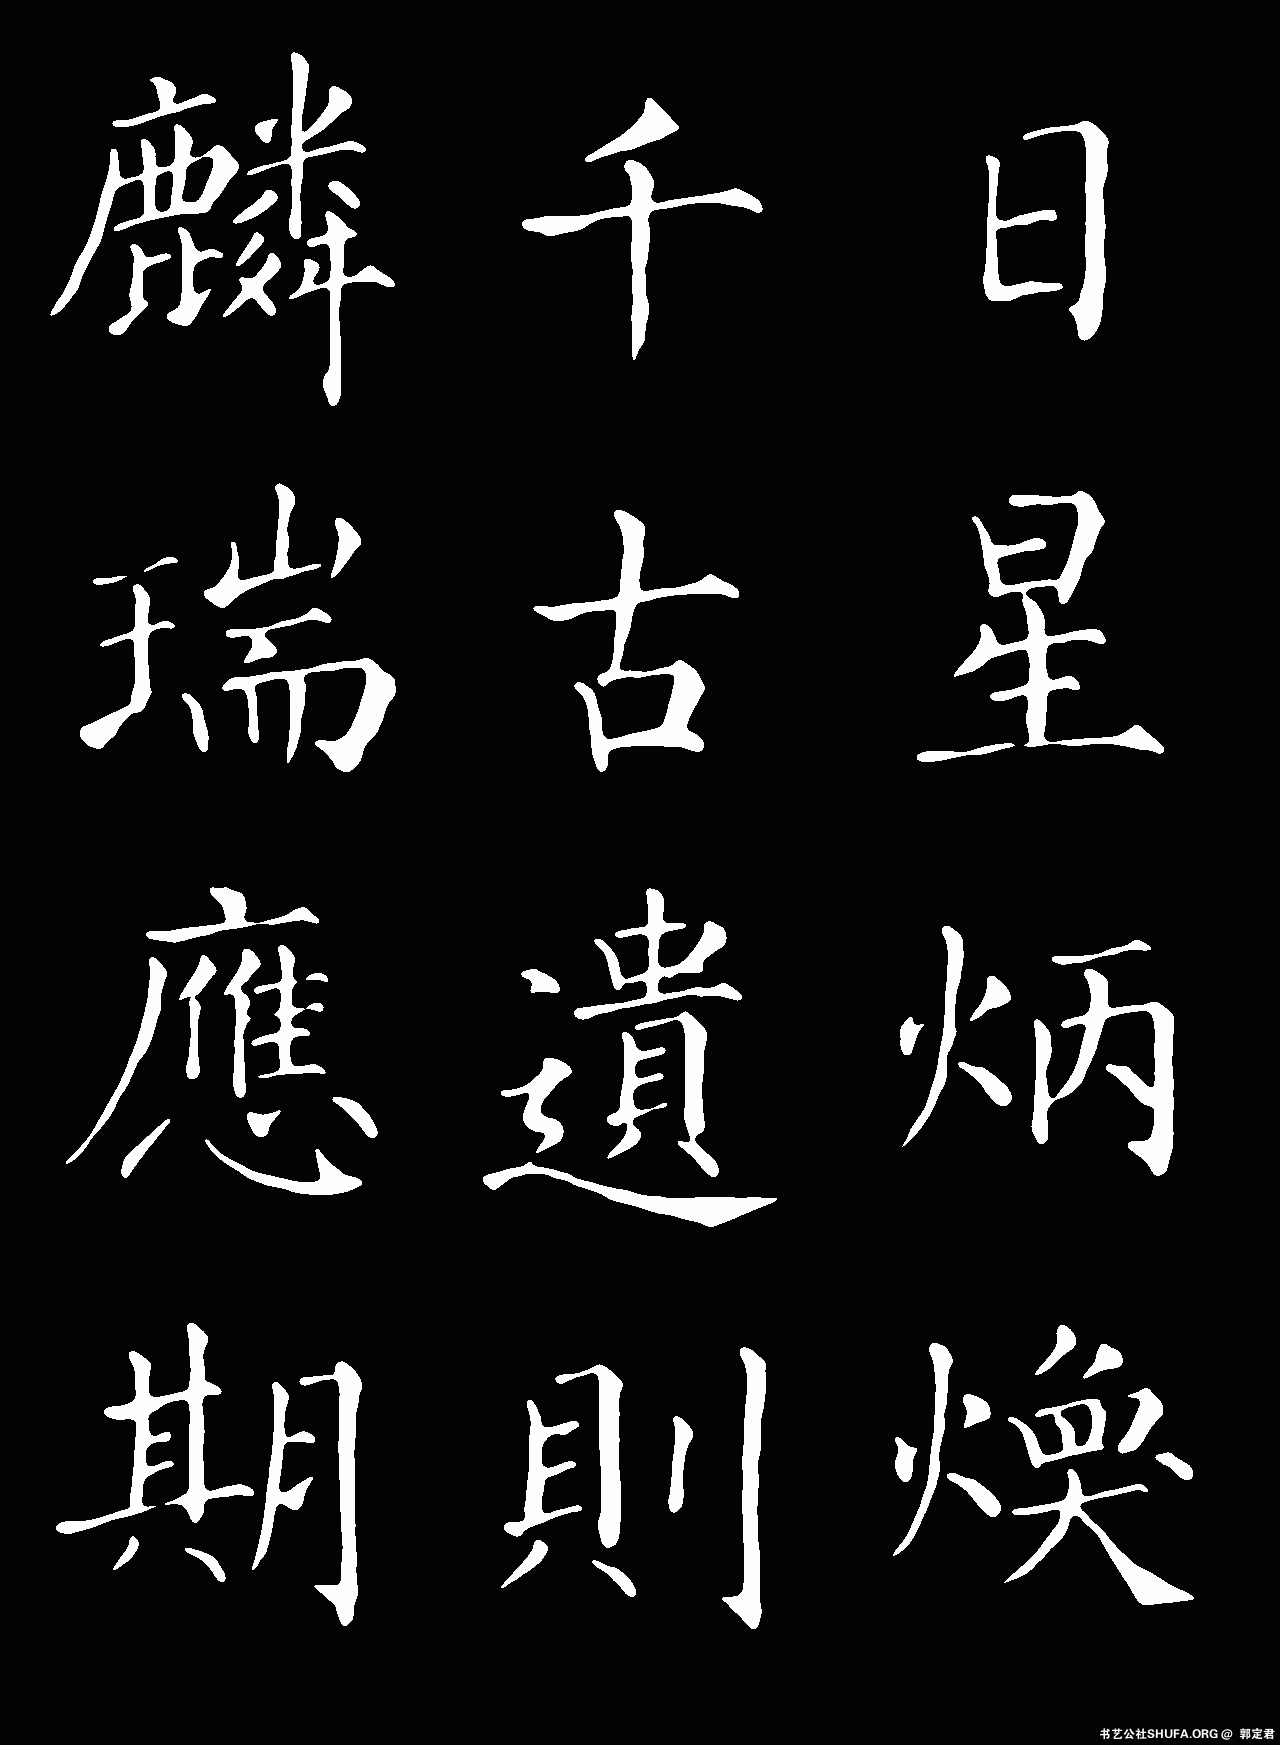 日星炳煥
千古遺則
麟瑞應期
书艺公社SHUFA.ORG @ 郭定君